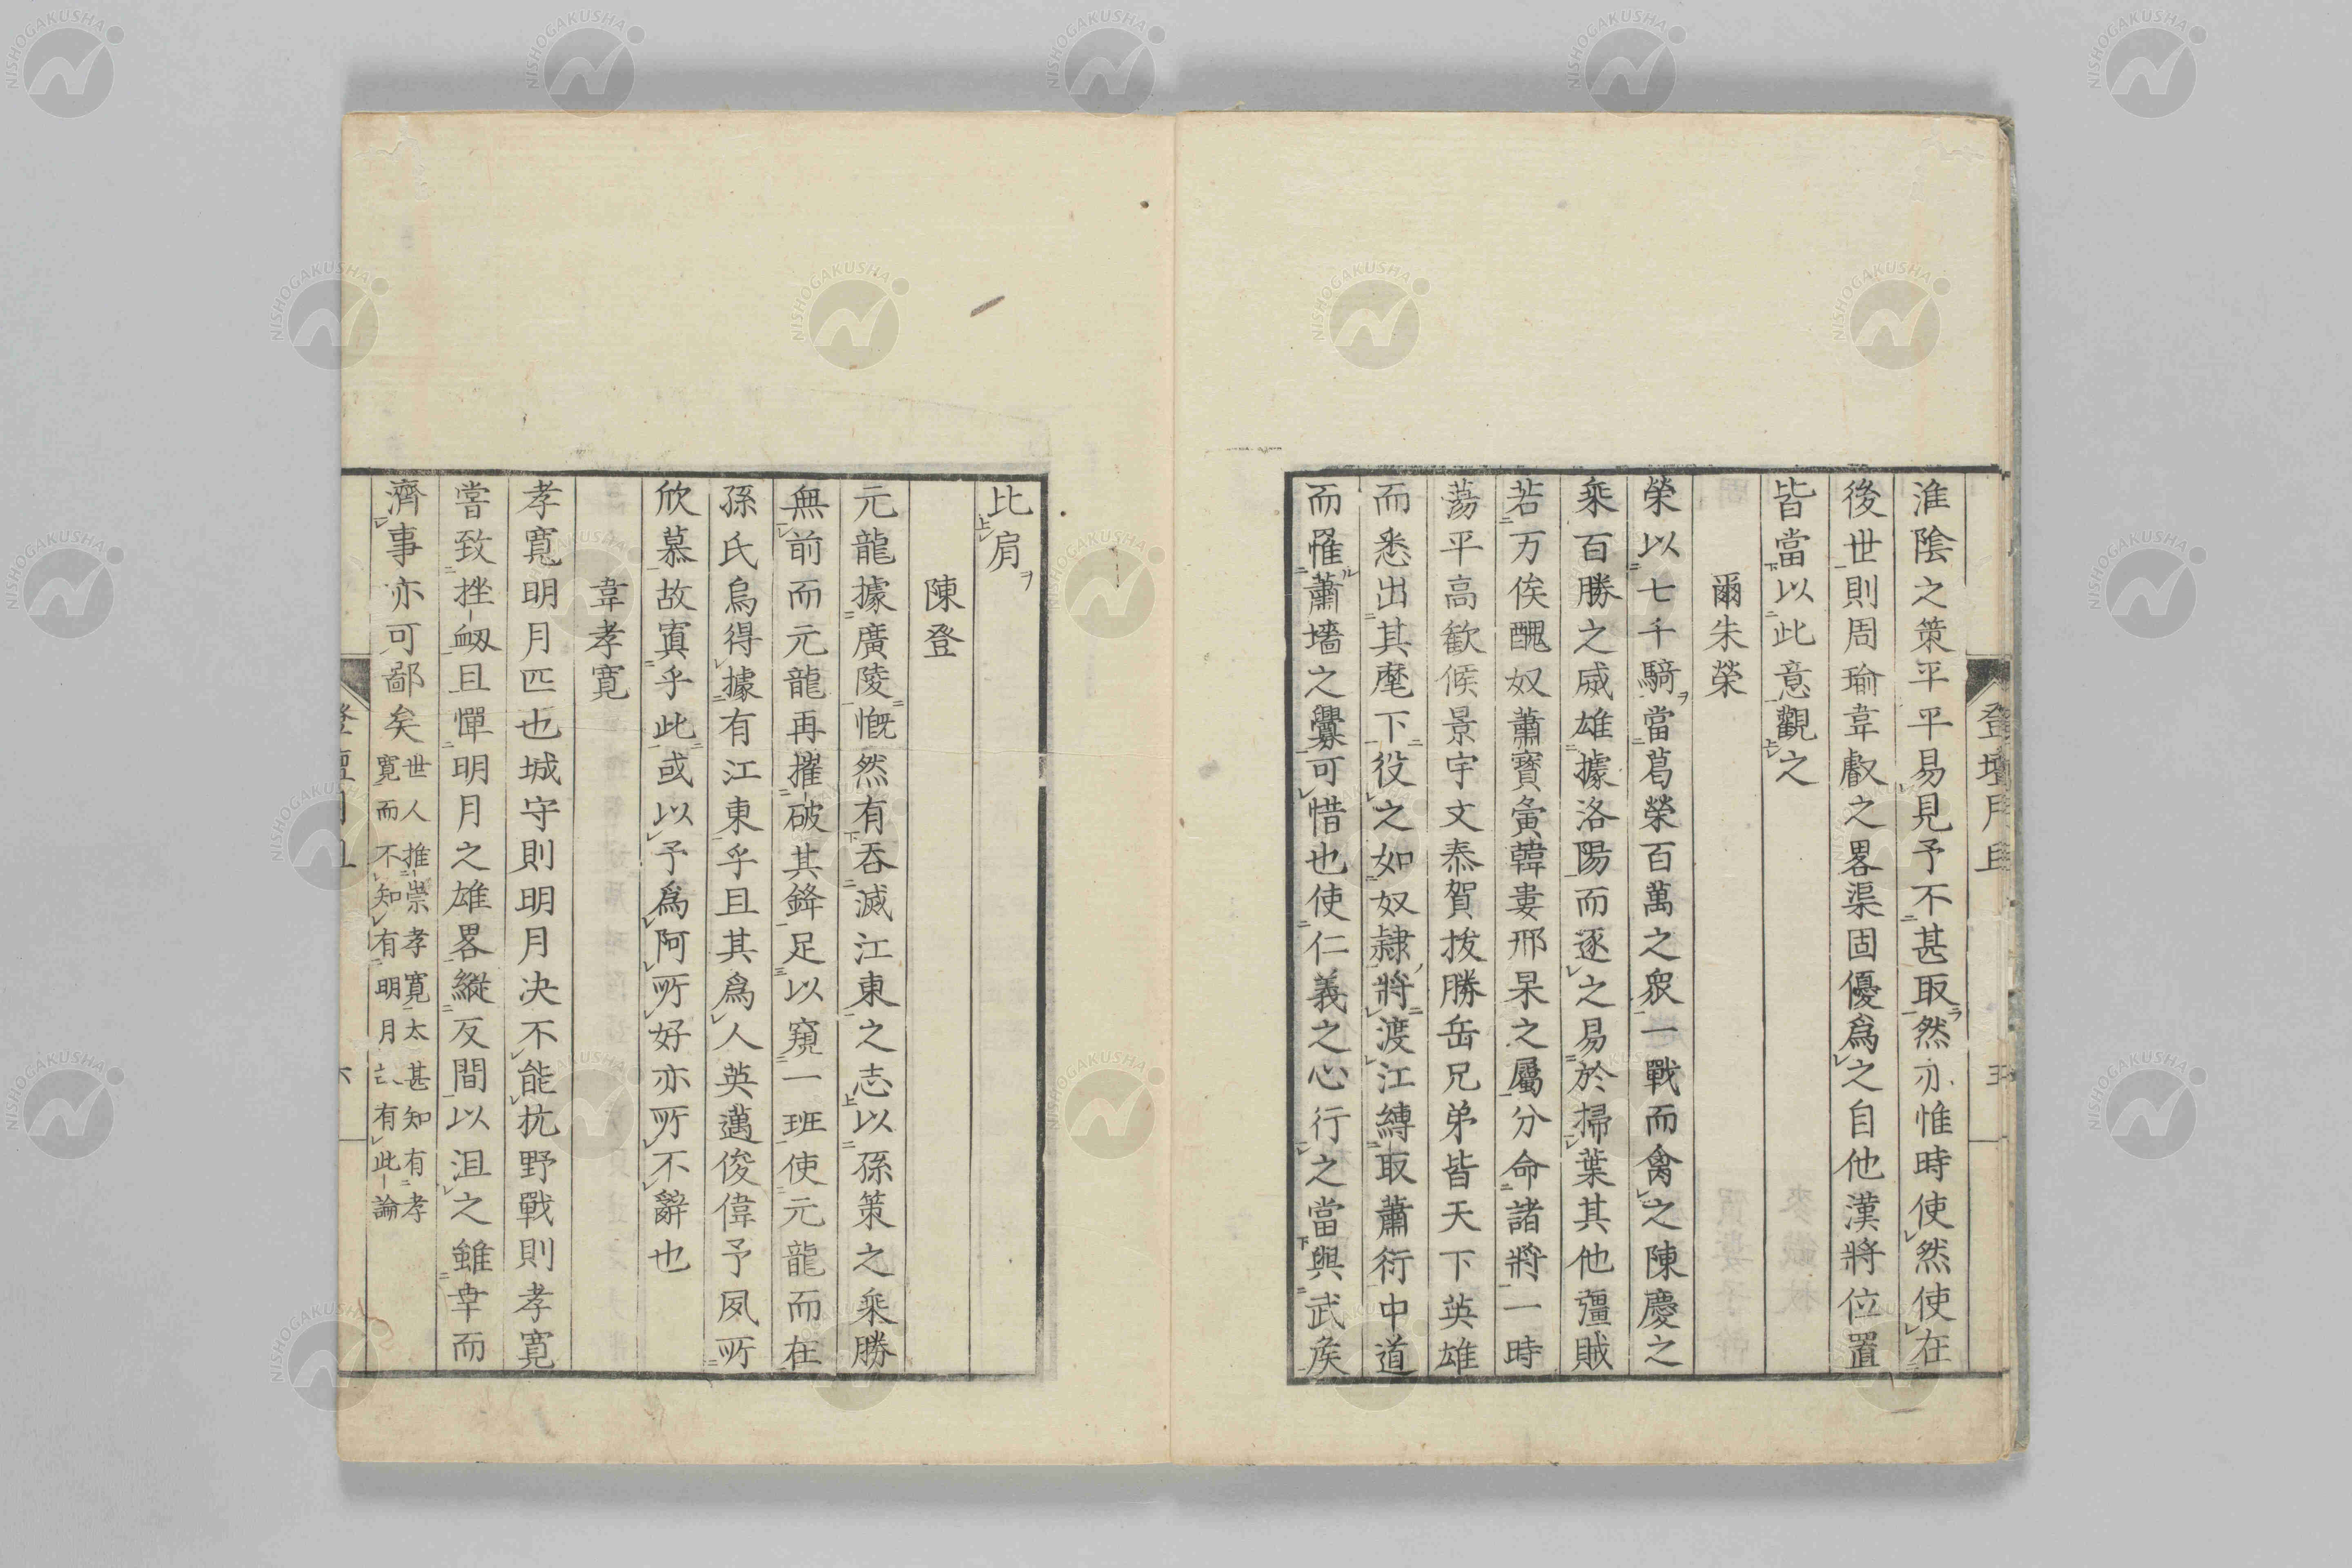 登壇月旦 五
淮陰之策平平易見予不甚取然亦惟時使然使在
後世則周瑜韋叡之畧渠固優爲之自他漢將位置
皆當以此意觀之
爾朱榮
榮以七千騎當葛榮百萬之眾一戰而禽之陳慶之
乘百勝之威雄據洛陽而逐之易於掃葉其他彊賊
若万俟醜奴蕭寳夤韓婁邢杲之屬分命諸將一時
蕩平高歡候景宇文泰賀拔勝岳兄弟皆天下英雄
而悉出其麾下役之如奴隷將渡江縛取蕭衍中道
而罹蕭墻之釁可惜也使仁義之心行之當與武矦
比肩
陳登
元龍據廣陵慨然有吞滅江東之志以孫策之乘勝
無前而元龍再摧破其鋒足以窺一班使元龍而在
孫氏烏得據有江東乎且其爲人英邁俊偉予夙所
欣慕故寘乎此或以予爲阿所好亦所不辭也
韋孝寛
孝寛明月匹也城守則明月决不能抗野戰則孝寛
嘗致挫衂且憚明月之雄畧縱反間以沮之雖幸而
濟事亦可鄙矣世人推崇孝寛太甚知有孝
寛而不知有明月亡有此論
登壇月旦 六
NISHOGAKUSHA